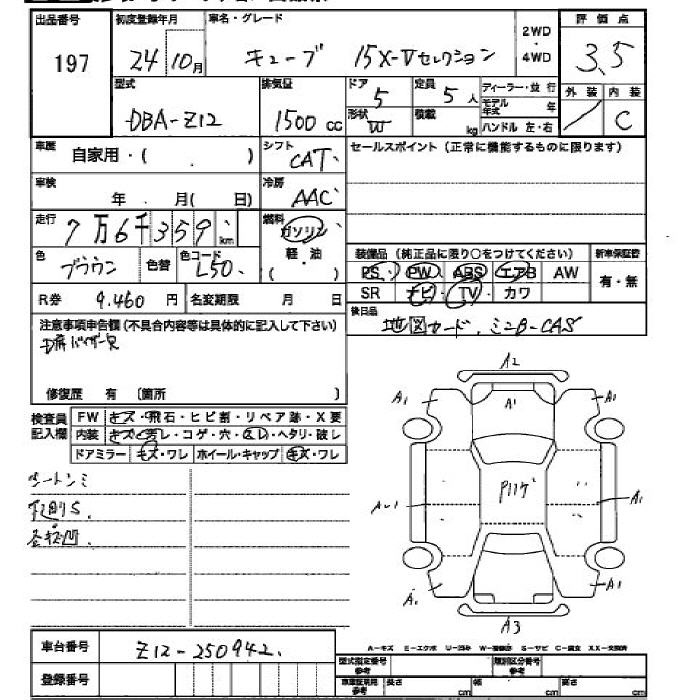 出品番号 初度登録年月 車名・グレード 2WD・4WD 評価点
197 24 10月 キューブ 15X-Vセレクション 3.5
型式 排気量 ドア 定員 ディーラー・並行 外装 内装
DBA-Z12 1500 cc 5 5人 モデル年式 年 / C
形状 W 積載 kg ハンドル 左・右
車歴 自家用・( . ) シフト CAT セールスポイント(正常に機能するものに限ります)
車検 年 月( 日) 冷房 AAC
走行 7万6千359 km 燃料 ガソリン 軽・油 ( )
装備品(純正品に限り○をつけてください) 新車保証書
色 ブラウン 色替 色コード L50 PS PW ABS エアB AW 有・無
R券 9.460円 名変期限 月 日 SR ナビ TV カワ
注意事項申告欄(不具合内容等は具体的に記入して下さい) 後日品 地図カード、ミニB-CAS
修復歴 有 (箇所 )
検査員記入欄 FW キズ・飛石・ヒビ割・リペア跡・X要
内装 キズ・汚レ・コゲ・穴・スレ・ヘタリ・破レ
ドアミラー キズ・ワレ ホイール・キャップ キズ・ワレ
A2
A1 A1 A1
A1
A1 A1
A3
車台番号 Z12-250942
A-キズ E-エクボ U-凹み S-サビ
登録番号 型式指定番号 参考 類別区分番号 参考
車庫証明用 参考 長さ cm 幅 cm 高さ cm